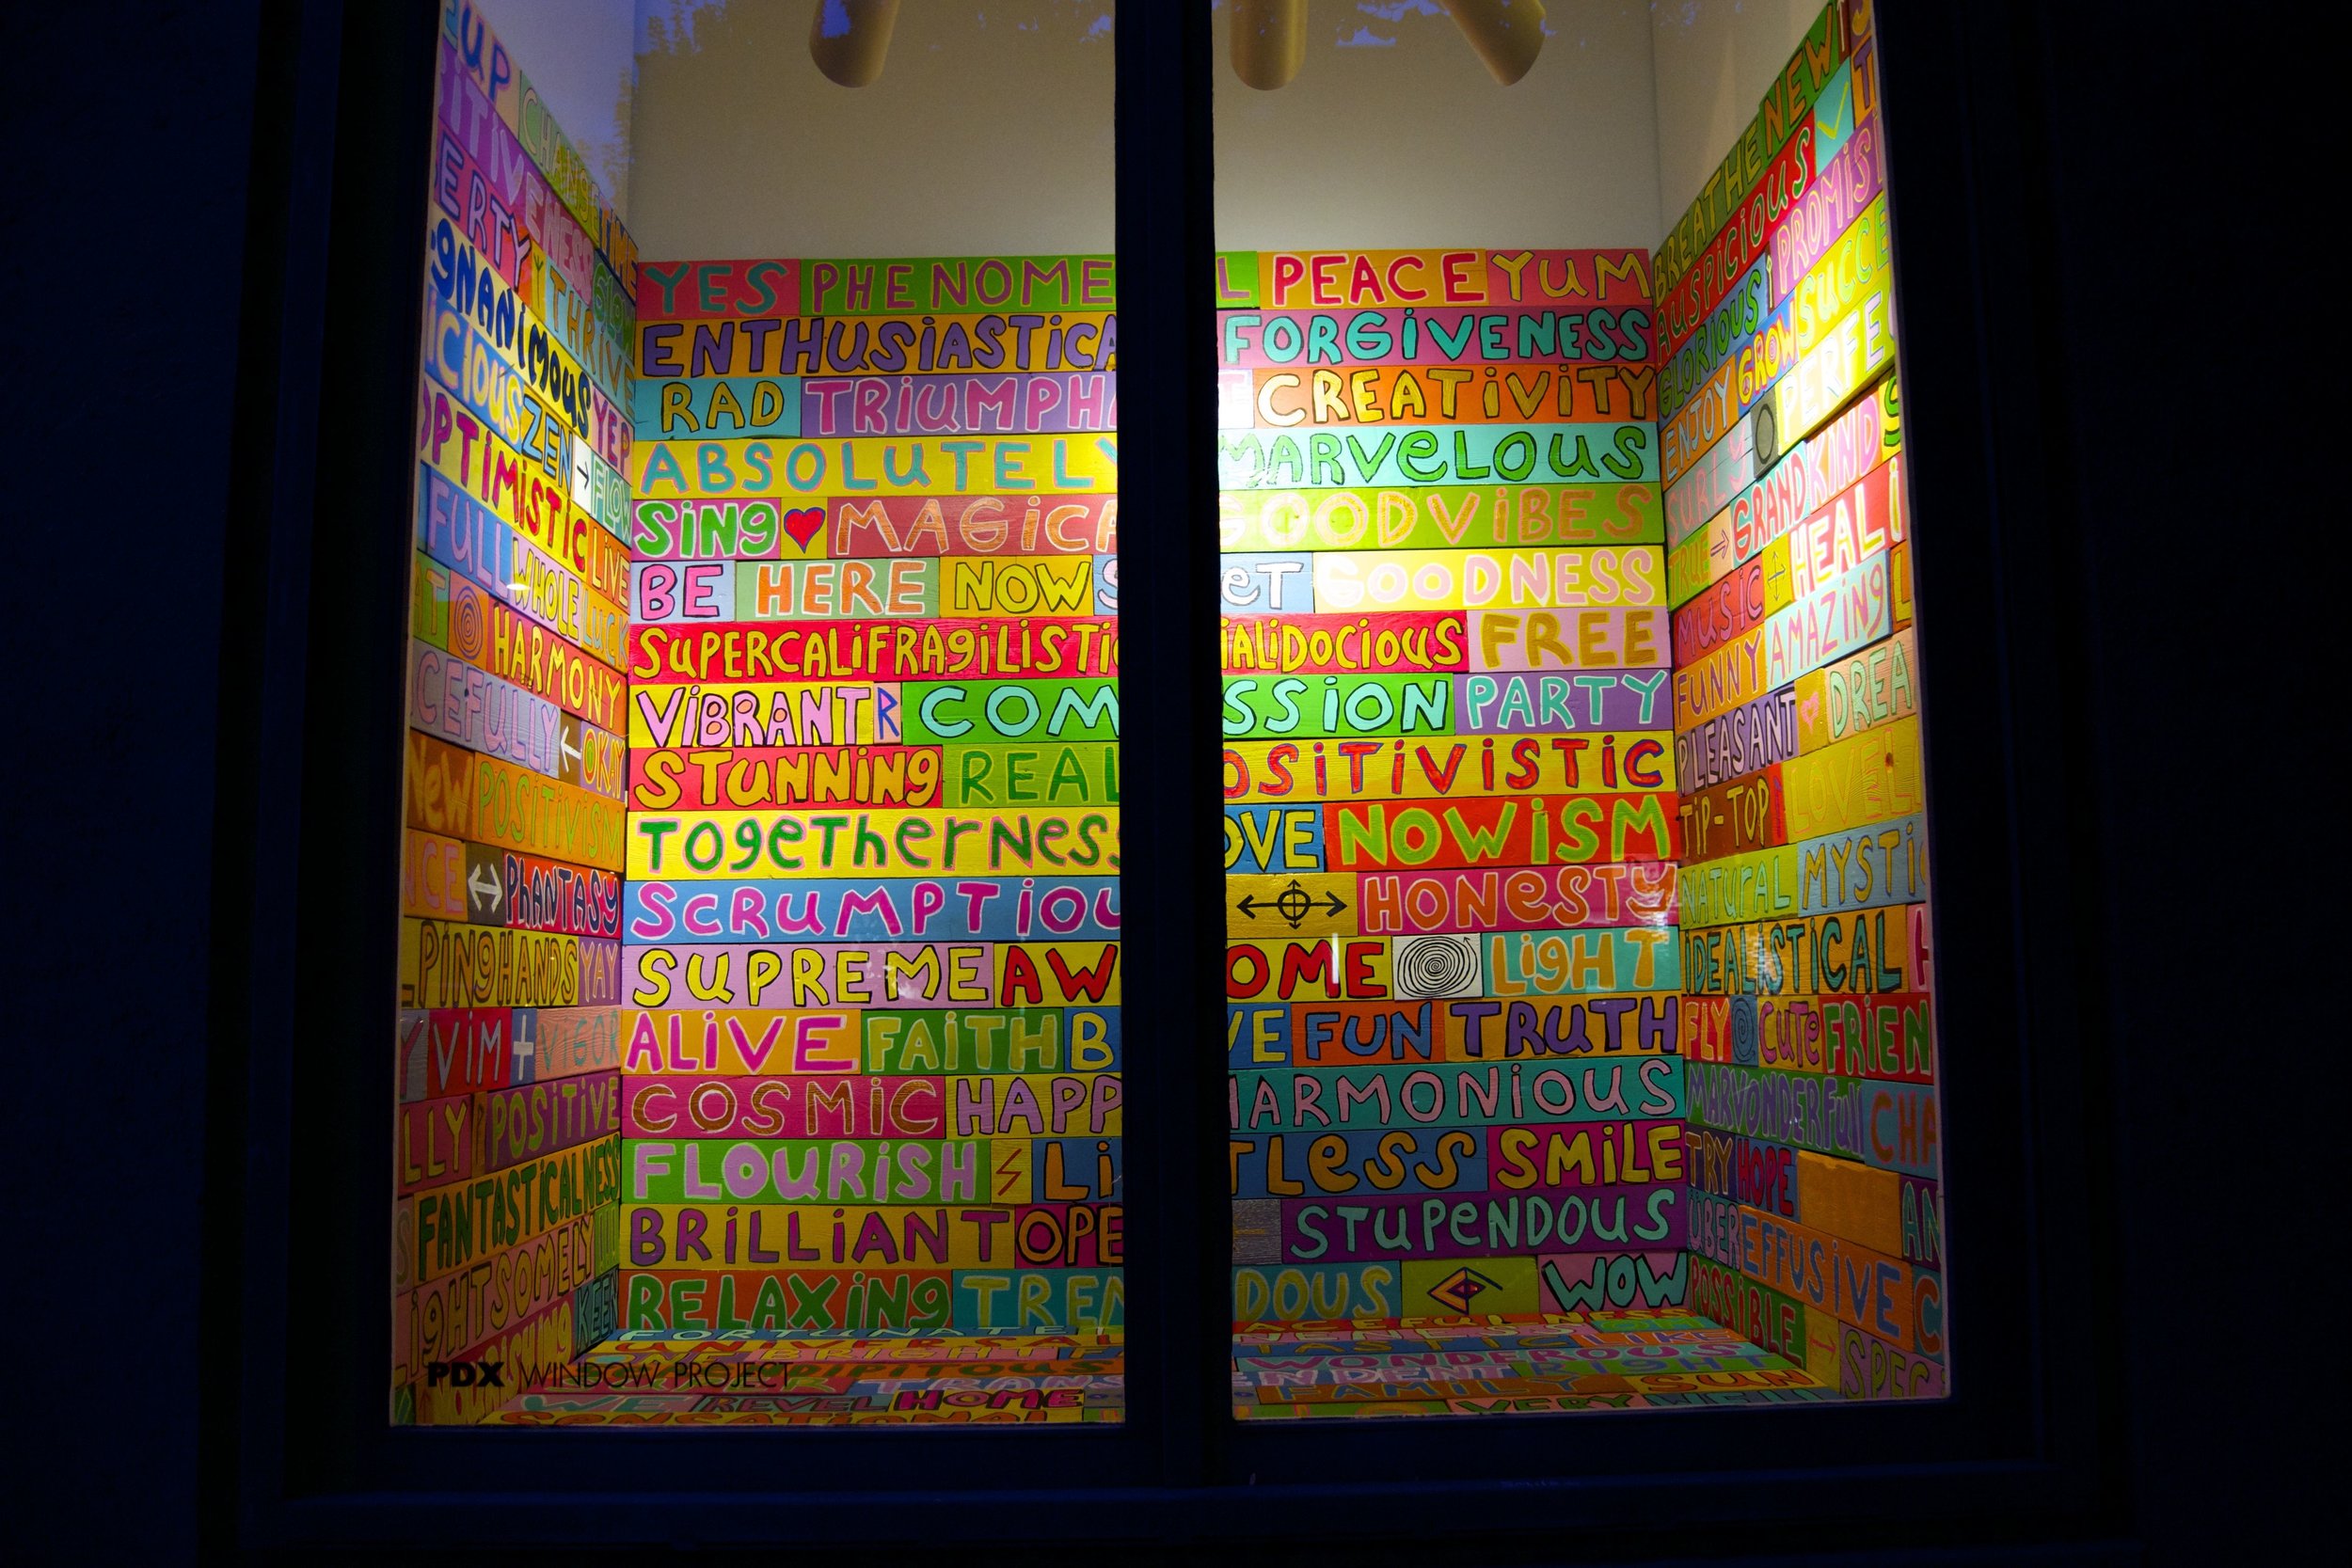 UP CHANGE TIME
ITIVENESS GLOW
ERTY THRIVE
GNANIMOUS YEP
ICIOUS ZEN → FLOW
OPTIMISTIC LIVE
FULL WHOLE LUCK
T HARMONY
CEFULLY ← OKAY
NEW POSITIVISM
NCE ↔ PHANTASY
LPING HANDS YAY
Y VIM + VIGOR
LLY POSITIVE
FANTASTICALNESS
LIGHTSOMELY
KEEN
YES PHENOME L PEACE YUM
ENTHUSIASTICA FORGIVENESS
RAD TRIUMPHA T CREATIVITY
ABSOLUTELY MARVELOUS
SING ♥ MAGICA GOOD VIBES
BE HERE NOW S ET GOODNESS
SUPERCALIFRAGILISTIC IALIDOCIOUS FREE
VIBRANT R COM SSION PARTY
STUNNING REAL OSITIVISTIC
TOGETHERNESS OVE NOWISM
SCRUMPTIOU HONESTY
SUPREME AW OME LIGHT
ALIVE FAITH B VE FUN TRUTH
COSMIC HAPP HARMONIOUS
FLOURISH LI TLESS SMILE
BRILLIANT OPE STUPENDOUS
RELAXING TREN DOUS WOW
BREATHE NEW
AUSPICIOUS ✓
GLORIOUS PROMISI
ENJOY GROW SUCCE
SURLY PERFE
TRUE → GRAND KIND
MUSIC HEALI
FUNNY AMAZING L
PLEASANT DREA
TIP-TOP LOVEL
NATURAL MYSTIC
IDEALISTICAL H
FLY CUTE FRIEN
MARVONDERFULL CHA
TRY HOPE
ÜBER EFFUSIVE AN
POSSIBLE → SPEC C
WONDEROUS
NDENT RIGHT
FAMILY SUN
VERY WELL
PITOUS
TRANS
WE REVEL HOME
SENSATIONAL
PDX WINDOW PROJECT